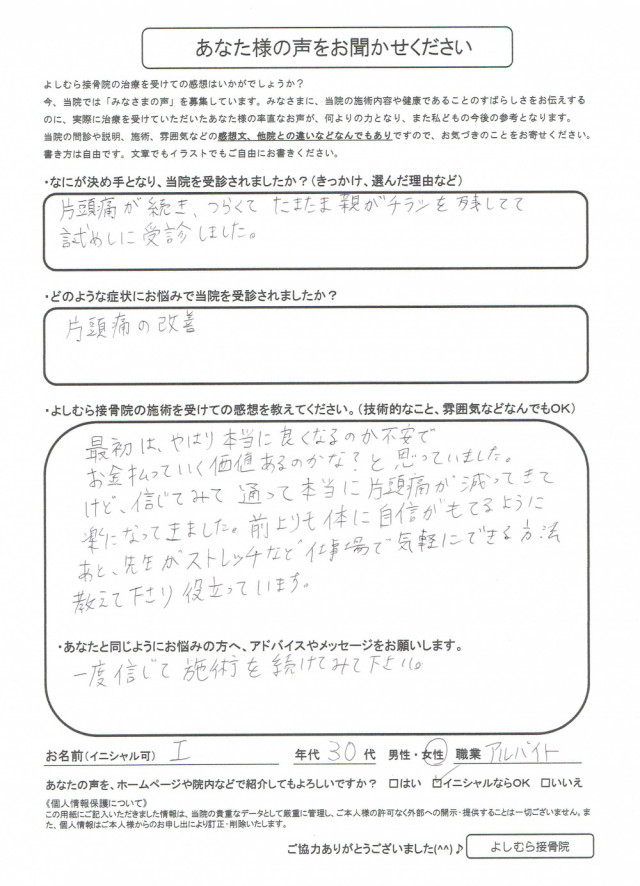 あなた様の声をお聞かせください
よしむら接骨院の治療を受けての感想はいかがでしょうか？
今、当院では「みなさまの声」を募集しています。みなさまに、当院の施術内容や健康であることのすばらしさをお伝えする
のに、実際に治療を受けていただいたあなた様の率直なお声が、何よりの力となり、また私どもの今後の参考となります。
当院の問診や説明、施術、雰囲気などの感想文、他院との違いなどなんでもありですので、お気づきのことをお寄せください。
書き方は自由です。文章でもイラストでもご自由にお書きください。
・なにが決め手となり、当院を受診されましたか？（きっかけ、選んだ理由など）
片頭痛が続き、つらくて たまたま親がチラシを残してて
試めしに受診しました。
・どのような症状にお悩みで当院を受診されましたか？
片頭痛の改善
・よしむら接骨院の施術を受けての感想を教えてください。（技術的なこと、雰囲気などなんでもOK）
最初は、やはり本当に良くなるのか不安で
お金払っていく価値あるのかな？と思っていました。
けど、信じてみて 通って本当に片頭痛が減ってきて
楽になってきました。前よりも体に自信がもてるように
あと、先生がストレッチなど仕事場で気軽にできる方法
教えて下さり役立っています。
・あなたと同じようにお悩みの方へ、アドバイスやメッセージをお願いします。
一度信じて施術を続けてみて下さい。
お名前（イニシャル可） I 年代 30 代 男性・女性 職業 アルバイト
あなたの声を、ホームページや院内などで紹介してもよろしいですか？ □はい ☑イニシャルならOK □いいえ
《個人情報保護について》
この用紙にご記入いただきました情報は、当院の貴重なデータとして厳重に管理し、ご本人様の許可なく外部への開示・提供することは一切ございません。ま
た、個人情報はご本人様からのお申し出により訂正・削除いたします。
ご協力ありがとうございました(^^)♪ よしむら接骨院